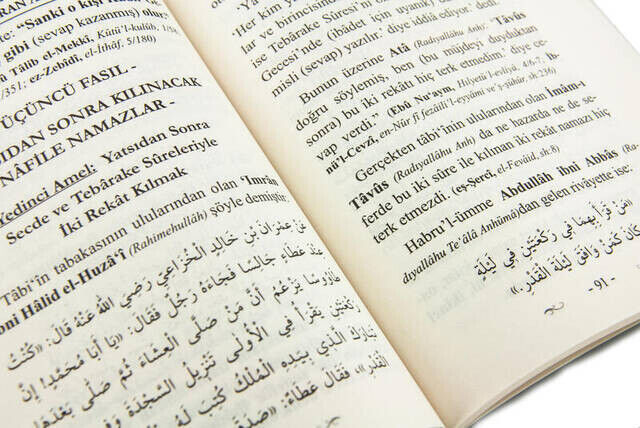 "Sanki o kişi
gibi (sevap kazanmış) olur"
Tâlib el-Mekkî, Kûtü'l-kulûb, 1/
/351; ez-Zebîdî, el-İthâf, 5/180)
ÜÇÜNCÜ FASIL -
SONRA KILINACAK
NÂFİLE NAMAZLAR -
Yedinci Amel: Yatsıdan Sonra
Secde ve Tebârake Sûreleriyle
İki Rekât Kılmak
Tâbi'în tabakasının ulularından olan 'Imrân
Hâlid el-Huzâ'î (Rahimehullâh) şöyle demiştir:
عَنْ عِمْرَانَ بْنِ خَالِدٍ الْخُزَاعِيِّ رَضِيَ اللهُ عَنْهُ قَالَ: «كُنْتُ
عِنْدَ عَطَاءٍ جَالِسًا فَجَاءَهُ رَجُلٌ فَقَالَ: «يَا أَبَا مُحَمَّدٍ! إِنَّ
طَاوُوسًا يَزْعُمُ أَنَّ مَنْ صَلَّى الْعِشَاءَ ثُمَّ صَلَّى بَعْدَهَا
رَكْعَتَيْنِ يَقْرَأُ فِي الْأُولَى تَنْزِيلُ السَّجْدَةَ وَفِي
تَبَارَكَ الَّذِي بِيَدِهِ الْمُلْكُ كُتِبَ لَهُ
الْقَدْرِ». فَقَالَ عَطَاءٌ: «صَدَقَ
Her kim yatsı
lar ve birincisinde
ise Tebârake Sûresi'n
Gecesi'nde (ibâdet için uyanık)
misli (sevap) yazılır' diye iddiâ ediyor.' dedi.
Bunun üzerine Atâ (Radıyallâhu Anh): 'Tâvûs
doğru söylemiş, ben (bu müjdeyi duyduktan
sonra) bu iki rekâtı hiç terk etmedim.' diye ce-
vap verdi." (Ebû Nu'aym, Hılyetü'l-evliyâ, 4/6,7; İb-
nü'l-Cevzî, en-Nûr fî fezâili'l-eyyâmi ve'ş-şühûr, sh:236)
Gerçekten tâbi'în'in ulularından olan İmâm-ı
Tâvûs (Radıyallâhu Anh) da ne hazarda ne de se-
ferde bu iki sûre ile kılınan iki rekât namazı hiç
terk etmezdi. (eş-Şercî, el-Fevâid, sh:8)
Habru'l-ümme Abdullâh ibni Abbâs
dıyallâhu Te'âlâ Anhümâ)dan gelen rivâyette ise:
«مَنْ قَرَأَ بِهِمَا فِي رَكْعَتَيْنِ فِي لَيْلَةٍ
كَانَ كَمَنْ وَافَقَ لَيْلَةَ الْقَدْرِ.»
-91-